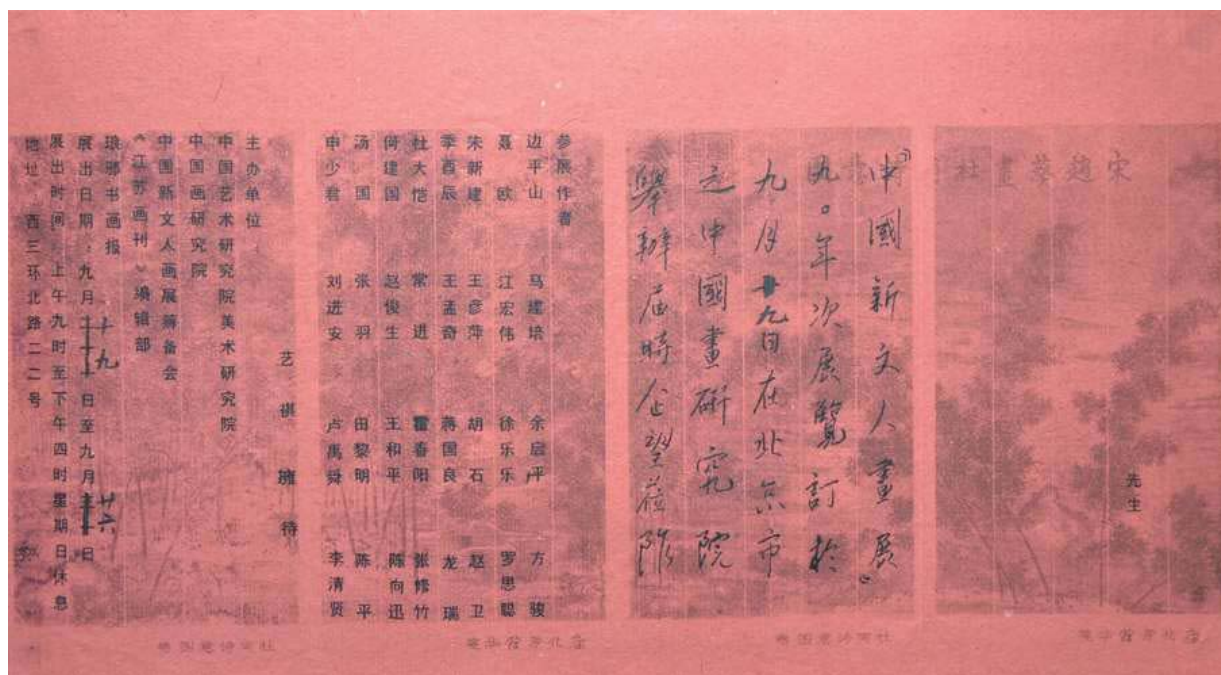 宋趙葵畫杜
先生
『中國新文人畫展』
九〇年次展覽訂於
九月十九日在北京市
之中國畫研究院
舉辦届時企望蒞
参展作者
边平山 马建培 余启平 方骏
聂欧 江宏伟 徐乐乐 罗思聪
朱新建 王彦萍 胡石 赵卫
季酉辰 王孟奇 蒋国良 龙瑞
杜大恺 常进 霍春阳 张修竹
何建国 赵俊生 王和平 陈向迅
汤国 张羽 田黎明 陈平
申少君 刘进安 卢禹舜 李清贤
艺祺 待
主办单位
中国艺术研究院美术研究院
中国画研究院
中国新文人画展筹备会
《江苏画刊》编辑部
琅琊书画报
展出日期：九月十九日至九月廿六日
展出时间：上午九时至下午四时星期日休息
地址：西三环北路二二号